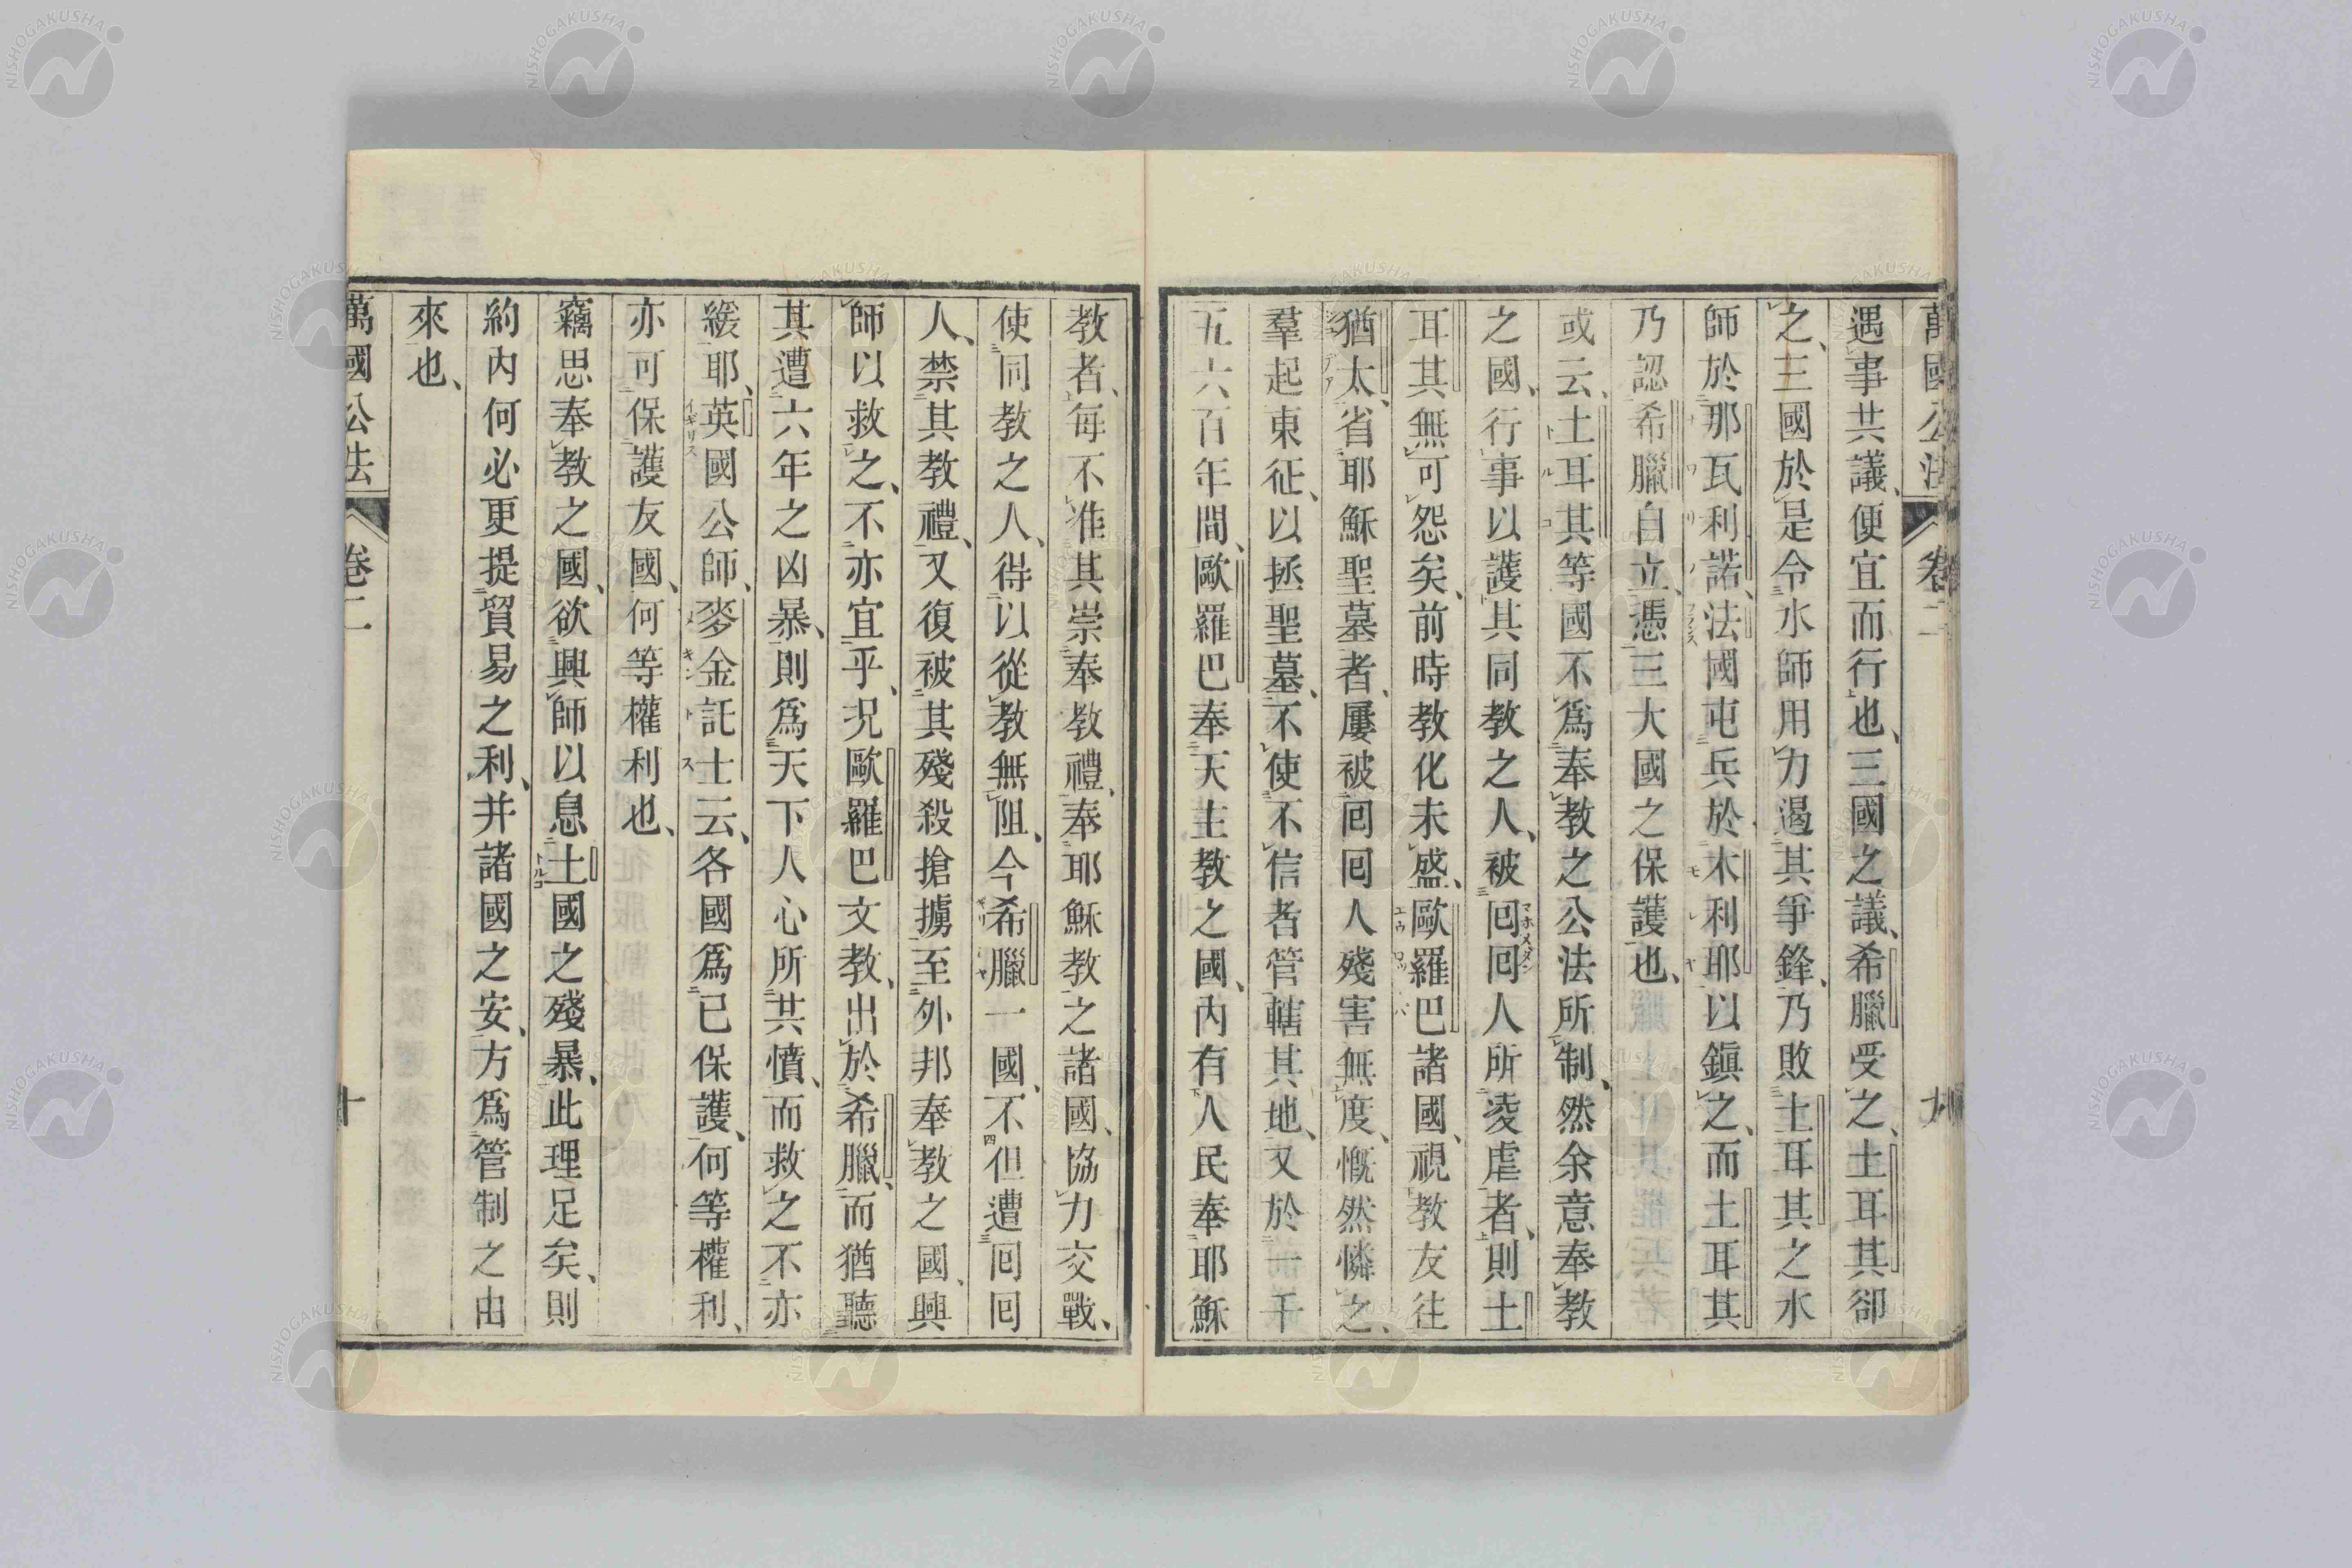 萬國公法 卷二 九
遇事共議、便宜而行也、三國之議、希臘受之、土耳其卻
之、三國於是令水師用力遏其爭鋒、乃敗土耳其之水
師於那瓦利諾、法國屯兵於木利耶、以鎮之、而土耳其
乃認希臘自立、憑三大國之保護也、
或云、土耳其等國不爲奉教之公法所制、然余意奉教
之國、行事以護其同教之人、被回回人所凌虐者、則土
耳其無可怨矣、前時教化未盛、歐羅巴諸國、視教友往
猶太、省耶穌聖墓者、屢被回回人殘害無度、慨然憐之、
羣起東征、以拯聖墓、不使不信者管轄其地、又於一千
五六百年間、歐羅巴奉天主教之國、內有人民奉耶穌
教者、每不准其崇奉教禮、奉耶穌教之諸國、協力交戰、
使同教之人、得以從教無阻、今希臘一國、不但遭回回
人、禁其教禮、又復被其殘殺搶擄、至外邦奉教之國、興
師以救之、不亦宜乎、況歐羅巴文教、出於希臘、而猶聽
其遭六年之凶暴、則爲天下人心所共憤、而救之不亦
緩耶、英國公師、麥金託士云、各國爲己保護、何等權利、
亦可保護友國、何等權利也、
竊思奉教之國、欲興師以息土國之殘暴、此理足矣、則
約內何必更提貿易之利、并諸國之安、方爲管制之由
來也、
萬國公法 卷二 十
NISHOGAKUSHA